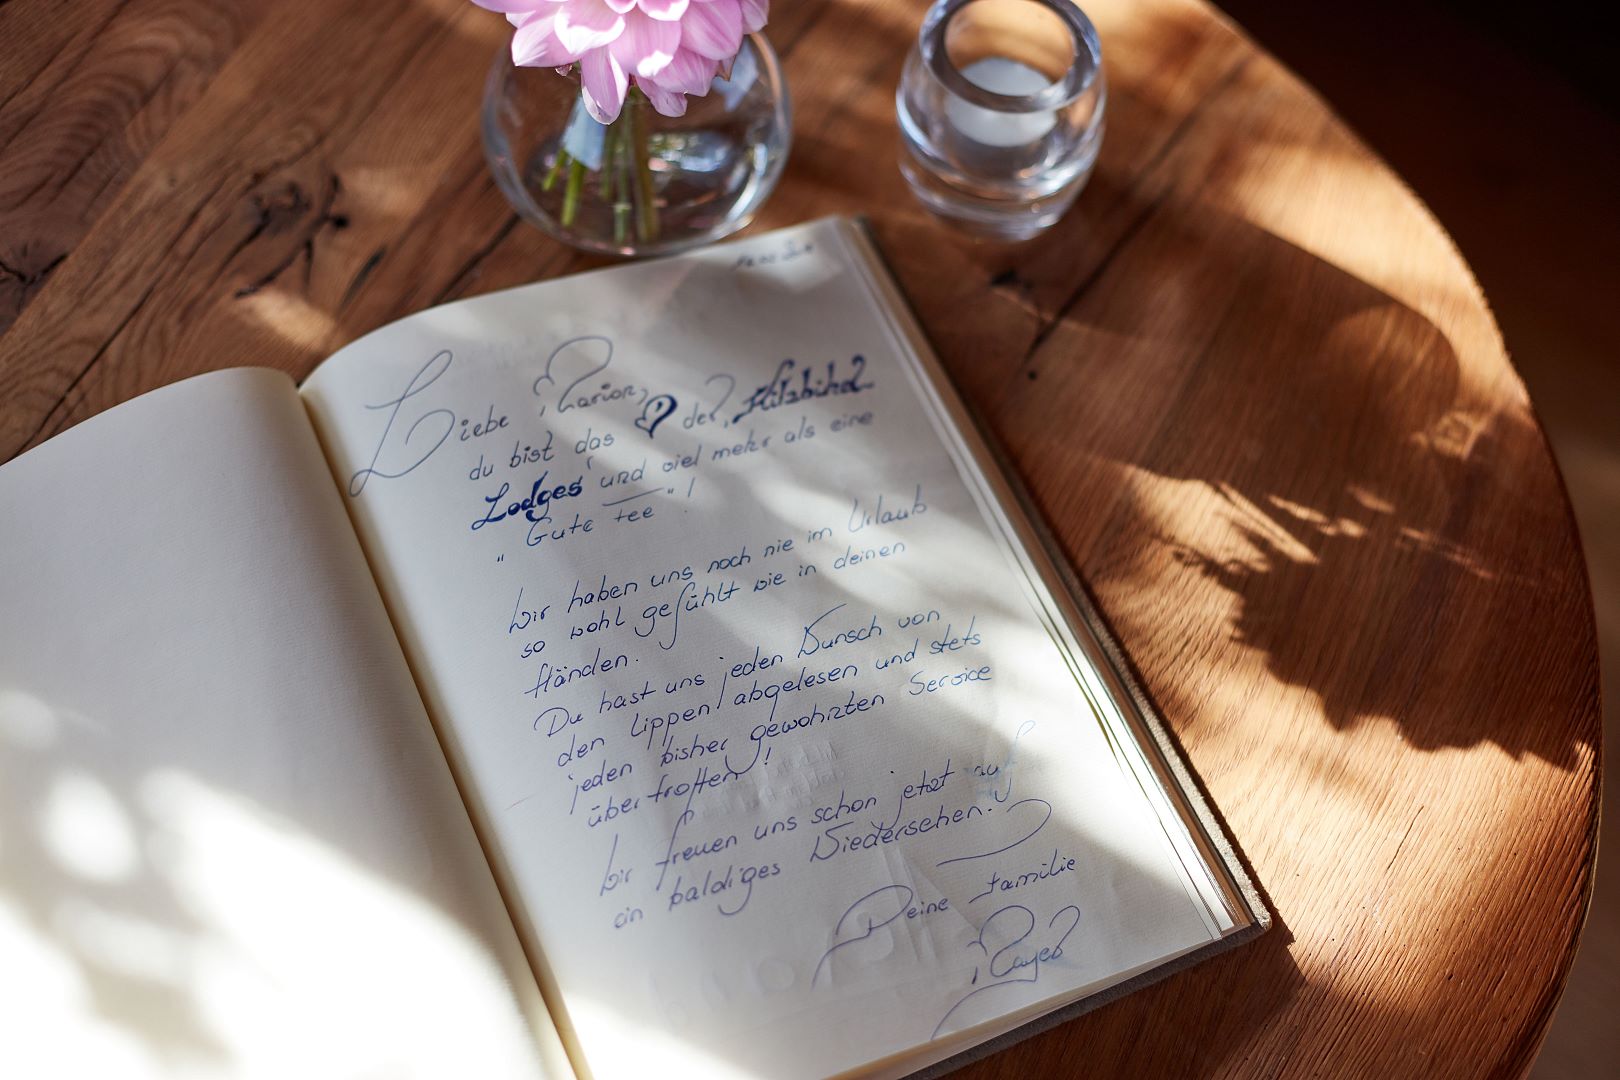 Liebe Marion,
du bist das ♡ der „Hilzbihel
Lodges“ und viel mehr als eine
„Gute Fee“!
Wir haben uns noch nie im Urlaub
so wohl gefühlt wie in deinen
Händen.
Du hast uns jeden Wunsch von
den Lippen abgelesen und stets
jeden bisher gewohnten Service
übertroffen!
Wir freuen uns schon jetzt auf
ein baldiges Wiedersehen.
Deine Familie
Mayer